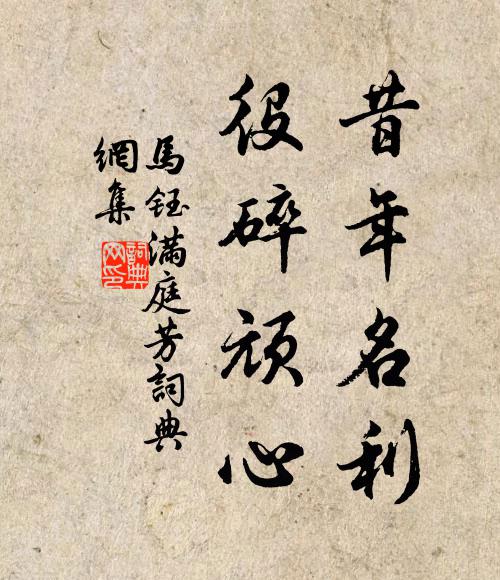 昔年名利
役碎頑心
馬鈺滿庭芳詞典
網集
詞典
网印